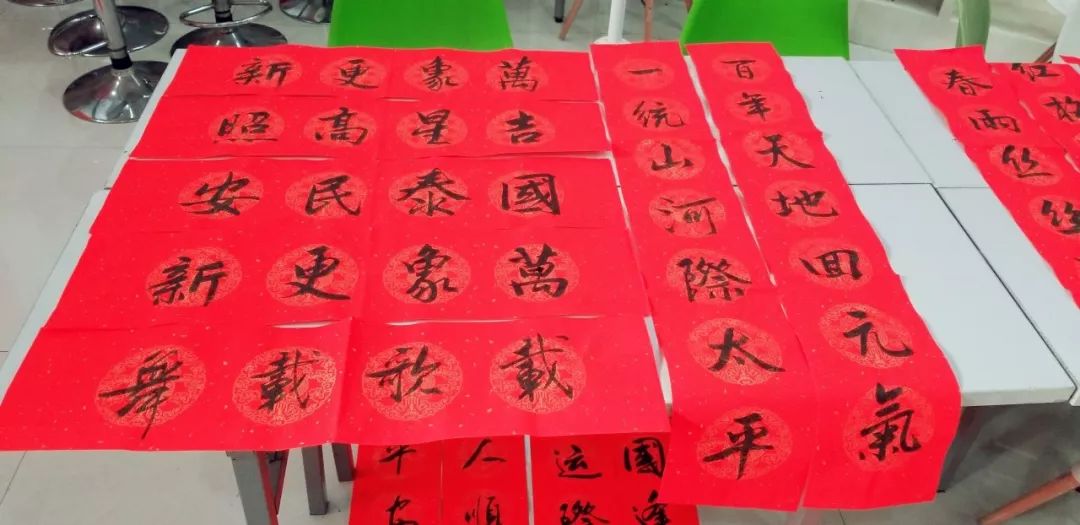 萬象更新
吉星高照
國泰民安
萬象更新
載歌載舞
百年天地囬元氣
一统山河際太平
春雨丝丝
國逢
运際
人順